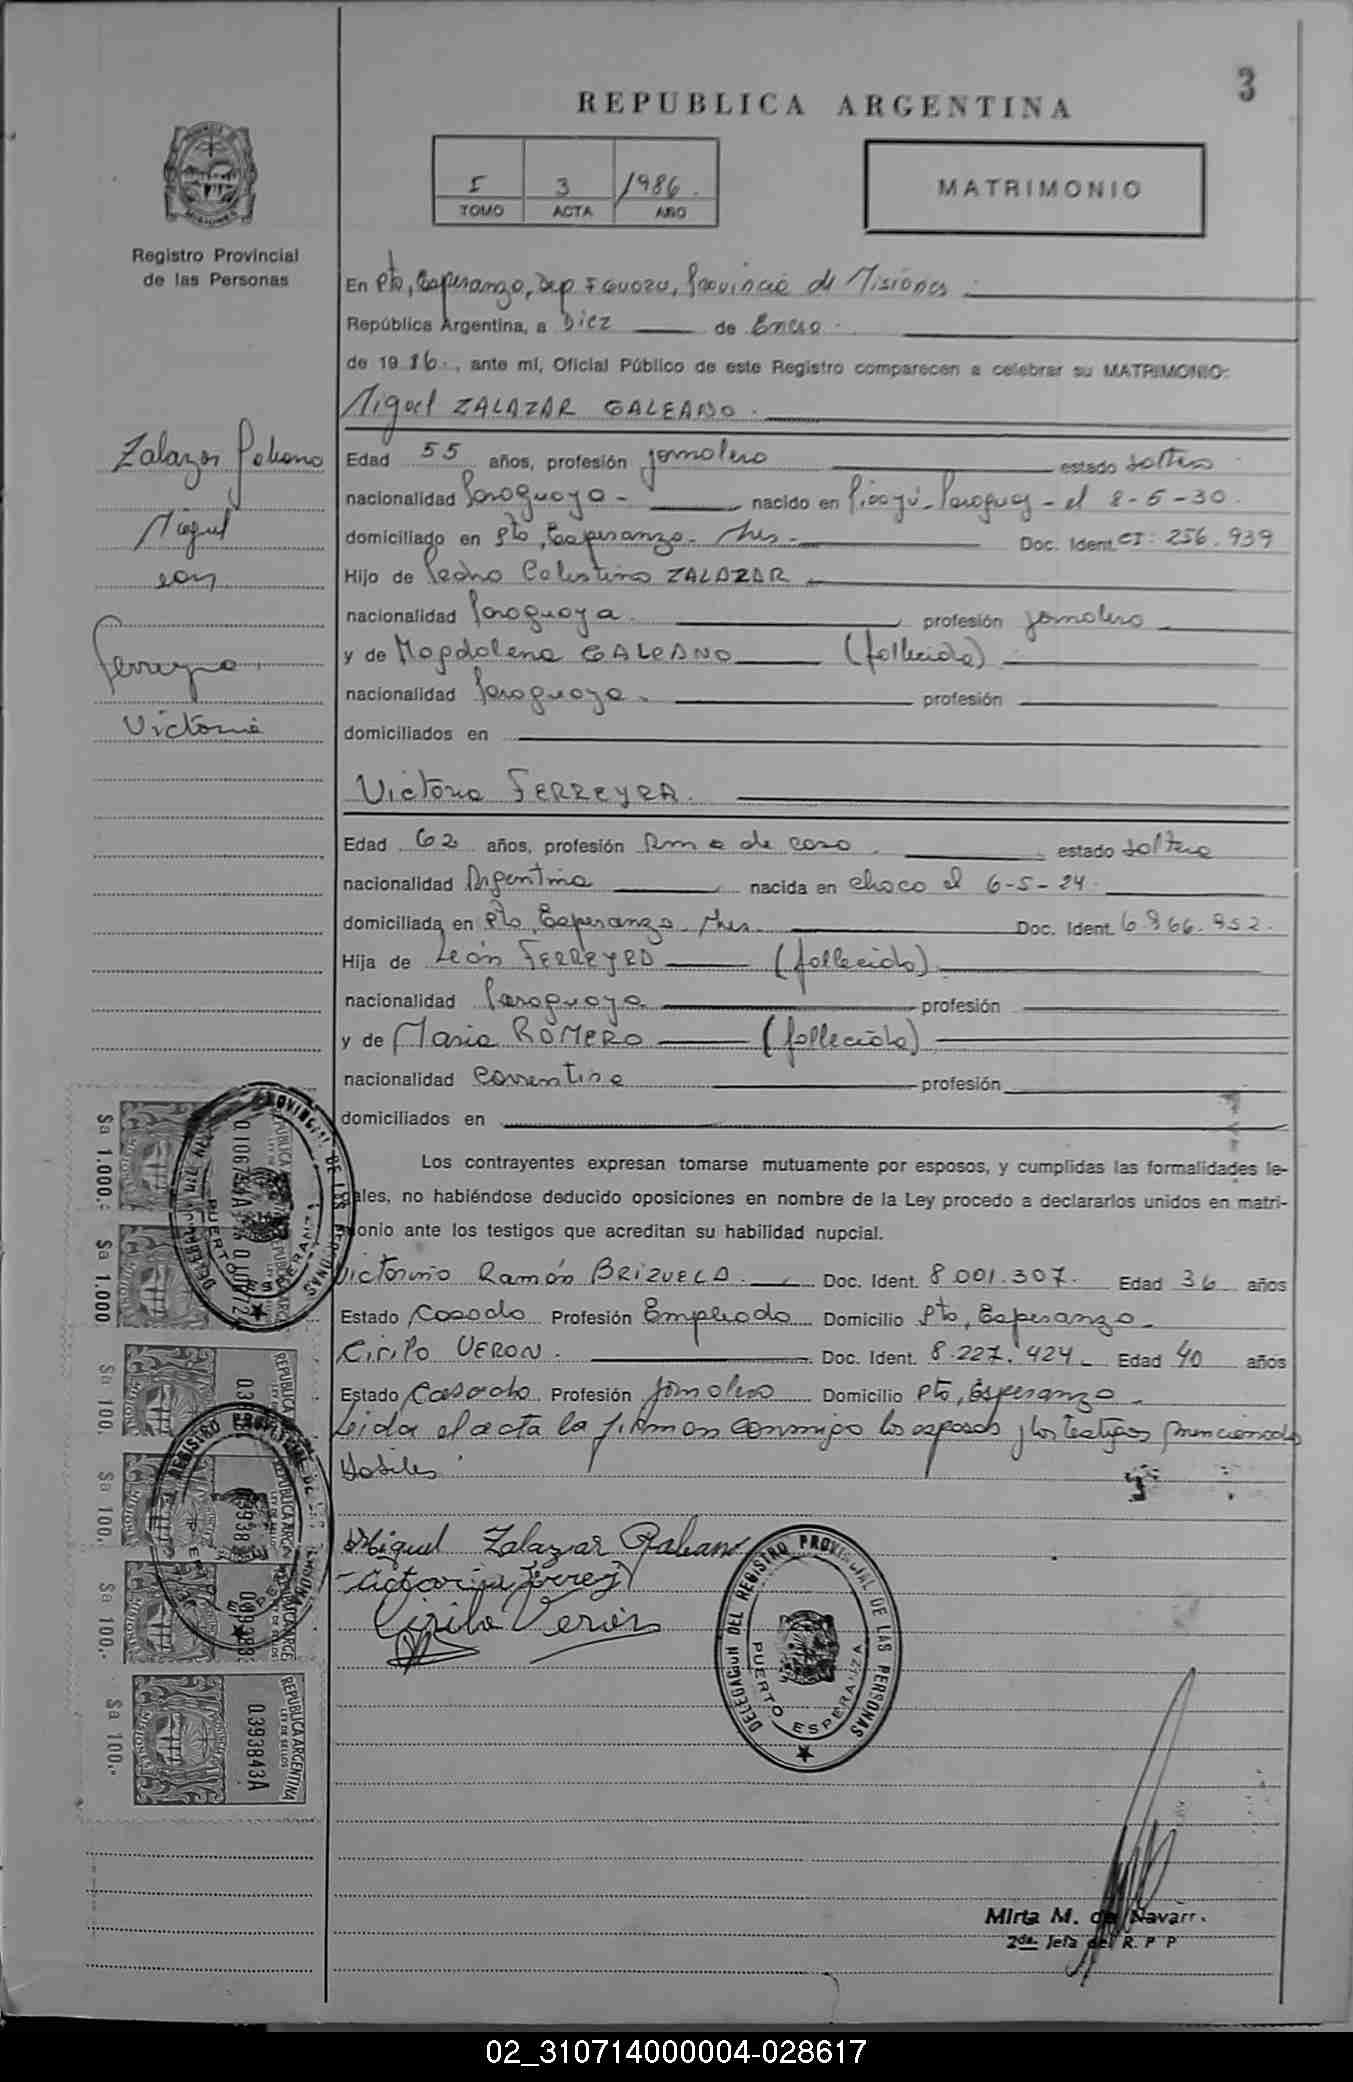 3
REPUBLICA ARGENTINA
I 3 1986.
TOMO ACTA AÑO
MATRIMONIO
MISIONES
Registro Provincial
de las Personas
En Pto, Esperanza, Dep Iguazu, Provincia de Misiones
República Argentina, a Diez de Enero.
de 19 86., ante mí, Oficial Público de este Registro comparecen a celebrar su MATRIMONIO:
Miguel ZALAZAR GALEANO.
Zalazar Galeano
Miguel
con
Ferreyra.
Victoria
Edad 55 años, profesión jornalero estado soltero
nacionalidad Paraguaya- nacido en Paraguay - el 8-5-30.
domiciliado en Pto, Esperanza- Mnes.- Doc. Ident. CI: 256.939
Hijo de Pedro Celestino ZALAZAR
nacionalidad Paraguaya. profesión jornalero
y de Magdalena GALEANO (fallecida)
nacionalidad Paraguaya. profesión
domiciliados en
Victoria FERREYRA.
Edad 62 años, profesión Ama de casa. estado soltera
nacionalidad Argentina nacida en chaco el 6-5-24.
domiciliada en Pto, Esperanza. Mnes. Doc. Ident. 6.866.852.
Hija de León FERREYRA (fallecido)
nacionalidad Paraguaya profesión
y de Maria ROMERO (fallecida)
nacionalidad Correntina profesión
domiciliados en
Los contrayentes expresan tomarse mutuamente por esposos, y cumplidas las formalidades le-
gales, no habiéndose deducido oposiciones en nombre de la Ley procedo a declararlos unidos en matri-
monio ante los testigos que acreditan su habilidad nupcial.
Victorino Ramón BRIZUELA. Doc. Ident. 8.001.307. Edad 36 años
Estado Casado Profesión Empleado Domicilio Pto, Esperanza.
Cirilo VERON. Doc. Ident. 8.227.424_ Edad 40 años
Estado Casado Profesión Jornalero Domicilio Pto, Esperanza.
Leida el acta la firman conmigo los esposos y los testigos mencionados
Habiles
Miguel Zalazar Galeano
Cirilo Verón
DELEGACION DEL REGISTRO PROVINCIAL DE LAS PERSONAS
PUERTO ESPERANZA
Sa 1.000.-
Sa 1.000
Sa 100.
Sa 100.
Sa 100.
Sa 100.-
REPUBLICA ARGENTINA
LEY DE SELLOS
0.393843A
Mirta M. de Navarr.
2da. Jefa del R. P P
02_310714000004-028617